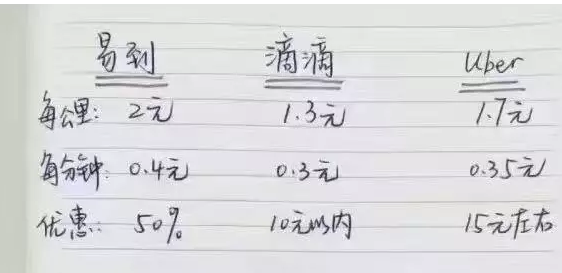 易到 滴滴 Uber
每公里: 2元 1.3元 1.7元
每分钟: 0.4元 0.3元 0.35元
优惠: 50% 10元以内 15元左右